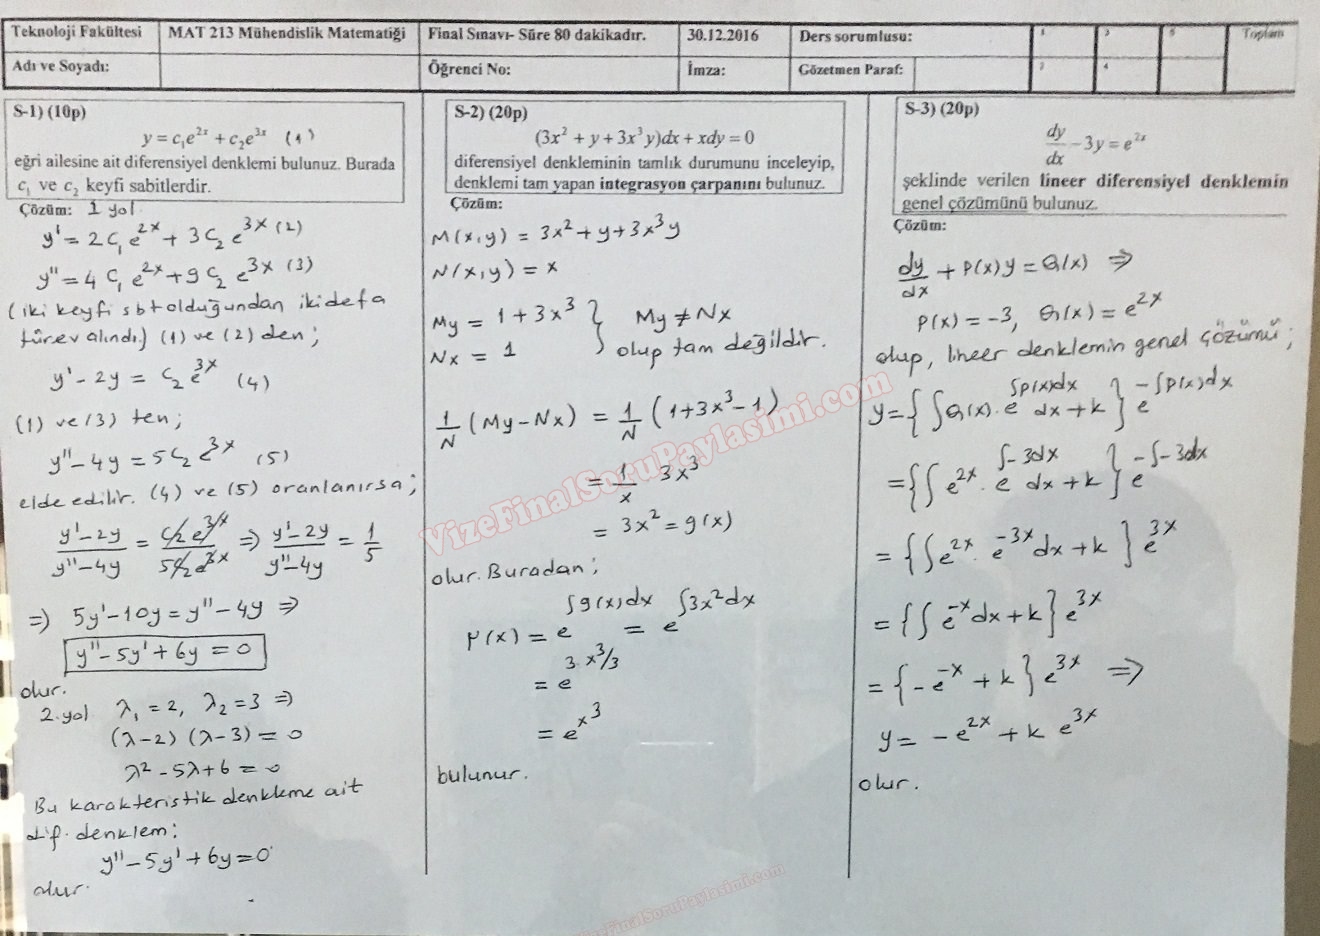 Teknoloji Fakültesi
MAT 213 Mühendislik Matematiği
Final Sınavı- Süre 80 dakikadır.
30.12.2016
Ders sorumlusu:
1
3
5
Toplam
Adı ve Soyadı:
Öğrenci No:
İmza:
Gözetmen Paraf:
2
4
S-1) (10p)
y = c₁e^{2x} + c₂e^{3x} (1)
eğri ailesine ait diferensiyel denklemi bulunuz. Burada
c₁ ve c₂ keyfi sabitlerdir.
Çözüm: 1 yol
y' = 2c₁e^{2x} + 3c₂e^{3x} (2)
y'' = 4c₁e^{2x} + 9c₂e^{3x} (3)
(iki keyfi sbt olduğundan iki defa
türev alındı.) (1) ve (2) den;
y' - 2y = c₂e^{3x} (4)
(1) ve (3) ten;
y'' - 4y = 5c₂e^{3x} (5)
elde edilir. (4) ve (5) oranlanırsa;
(y' - 2y)/(y'' - 4y) = (c₂e^{3x})/(5c₂e^{3x}) ⇒ (y' - 2y)/(y'' - 4y) = 1/5
⇒ 5y' - 10y = y'' - 4y ⇒
y'' - 5y' + 6y = 0
olur.
2.yol λ₁ = 2, λ₂ = 3 ⇒
(λ-2) (λ-3) = 0
λ² - 5λ + 6 = 0
Bu karakteristik denkleme ait
dif. denklem;
y'' - 5y' + 6y = 0
olur.
S-2) (20p)
(3x² + y + 3x³y)dx + xdy = 0
diferensiyel denkleminin tamlık durumunu inceleyip,
denklemi tam yapan integrasyon çarpanını bulunuz.
Çözüm:
M(x,y) = 3x² + y + 3x³y
N(x,y) = x
My = 1 + 3x³
Nx = 1
} My ≠ Nx
olup tam değildir.
1/N (My - Nx) = 1/N (1 + 3x³ - 1)
= 1/x 3x³
= 3x² = g(x)
olur. Buradan;
μ(x) = e^{∫g(x)dx} = e^{∫3x²dx}
= e^{3.x³/3}
= e^{x³}
bulunur.
S-3) (20p)
dy/dx - 3y = e^{2x}
şeklinde verilen lineer diferensiyel denklemin
genel çözümünü bulunuz.
Çözüm:
dy/dx + P(x)y = Q(x) ⇒
P(x) = -3, Q(x) = e^{2x}
olup, lineer denklemin genel çözümü;
y = {∫Q(x).e^{∫P(x)dx} dx + k} e^{-∫P(x)dx}
= {∫e^{2x}.e^{∫-3dx} dx + k} e^{-∫-3dx}
= {∫e^{2x}.e^{-3x}dx + k} e^{3x}
= {∫e^{-x}dx + k} e^{3x}
= {-e^{-x} + k} e^{3x} ⇒
y = -e^{2x} + k e^{3x}
olur.
VizeFinalSoruPaylasimi.com
VizeFinalSoruPaylasimi.com